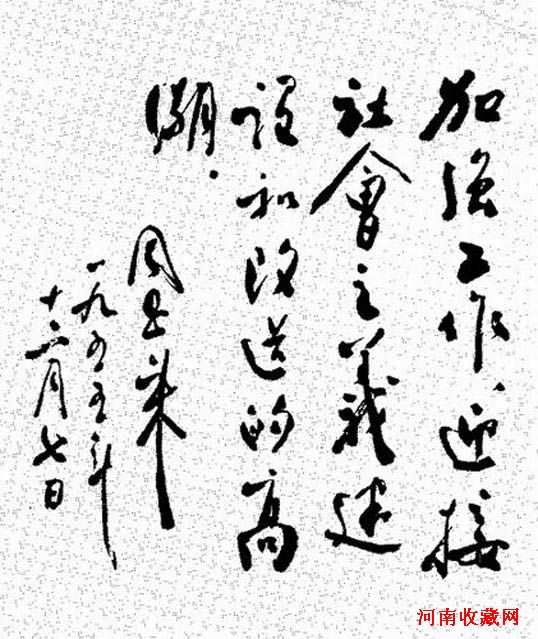 加强工作、迎接
社會主義建
設和改造的高
潮.
周恩来
一九五五年
十二月七日
河南收藏网